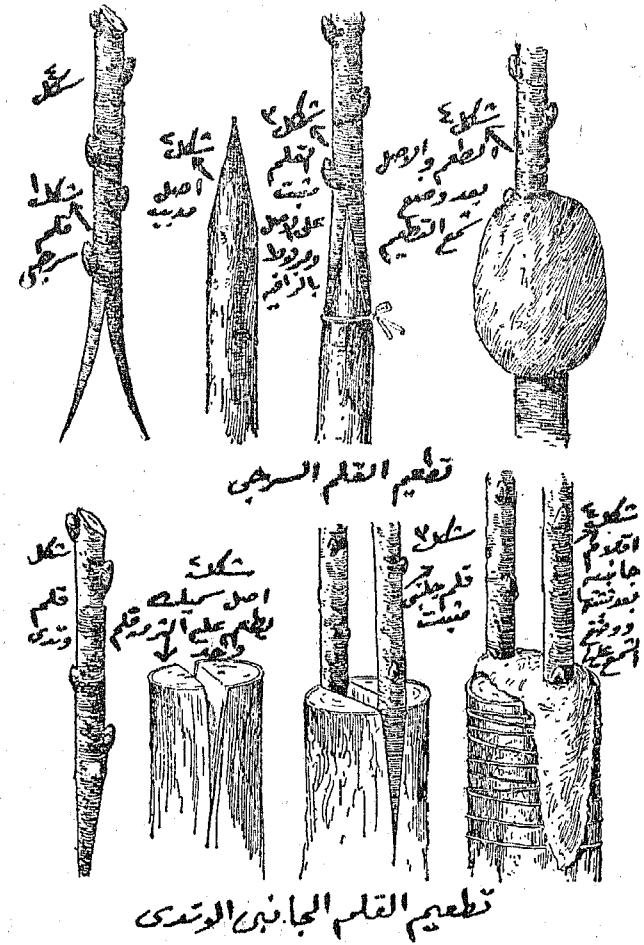 شكل
شكل ١
قلم
سرجى
شكل ٢
اصل
مدبب
شكل ٣
القلم
مثبت
على الاصل
ومربوط
بالرافيه
شكل ٤
الطعم والاصل
بعد وضع
شمع التطعيم
تطعيم القلم السرجى
شكل
قلم
وتدى
شكل ٢
اصل سميك
يطعم على اكثر من قلم
واحد
شكل ٣
قلم جانبى
مثبت
شكل ٤
اقلام
جانبيه
بعد تثبيتها
ووضع
الشمع عليها
تطعيم القلم الجانبى الوتدى